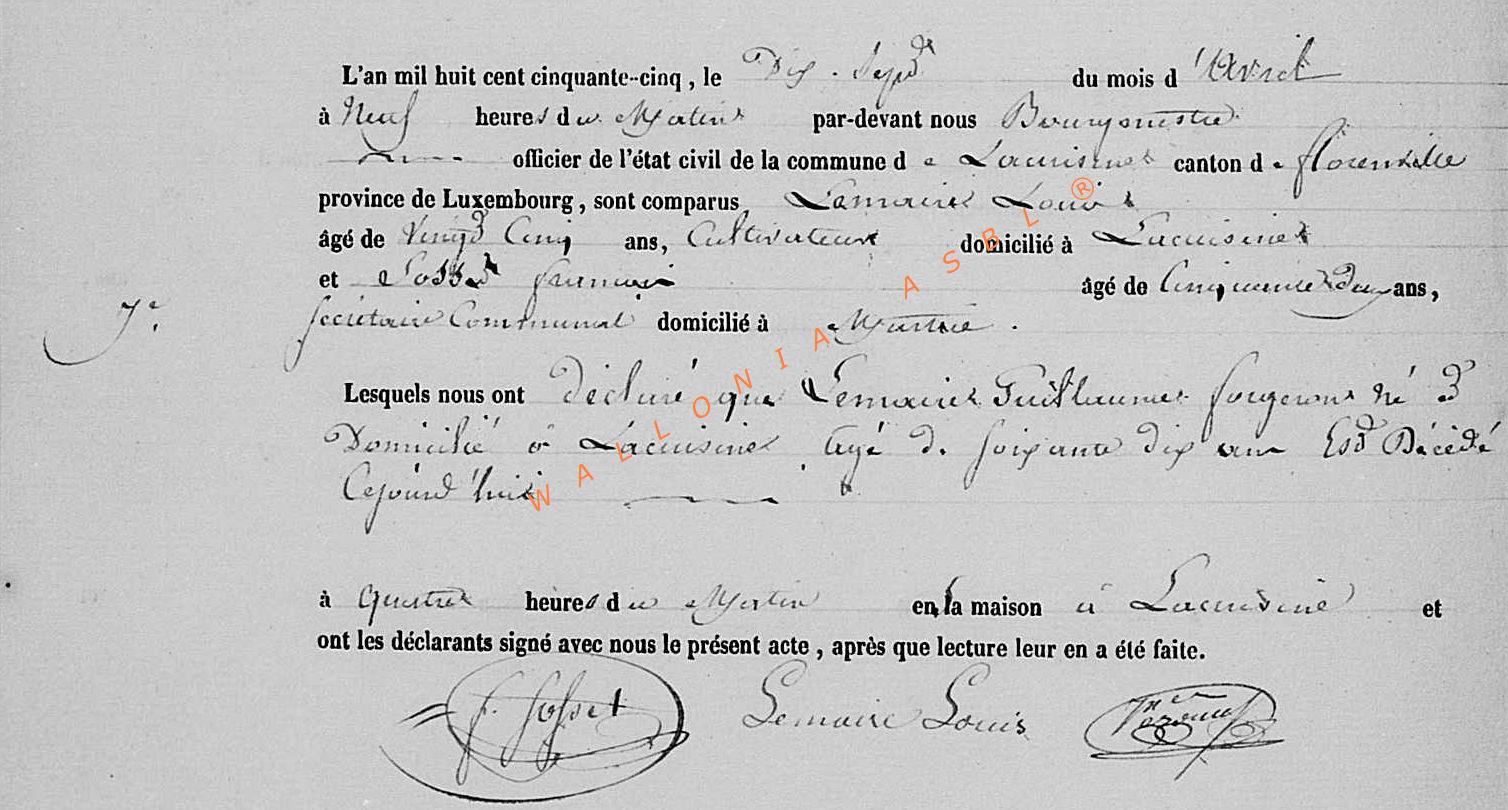 L'an mil huit cent cinquante-cinq, le Dix-Sept du mois d'Avril
à Neuf heures du Matin par-devant nous Bourgmestre
officier de l'état civil de la commune de Lacuisine canton de florenville
province de Luxembourg, sont comparus Lemaire Louis
âgé de Vingt Cinq ans, Cultivateur domicilié à Lacuisine
et Gosset francois âgé de Cinquante deux ans,
7e.
secrétaire Communal domicilié à Martué.
Lesquels nous ont déclaré que Lemaire Guillaume forgeron né et
Domicilié à Lacuisine agé de soixante dix ans Est Décédé
Cejourd'hui
à quatre heures du Matin en la maison à Lacuisine et
ont les déclarants signé avec nous le présent acte, après que lecture leur en a été faite.
f. Gosset Lemaire Louis
WALLONIA ASBL ®